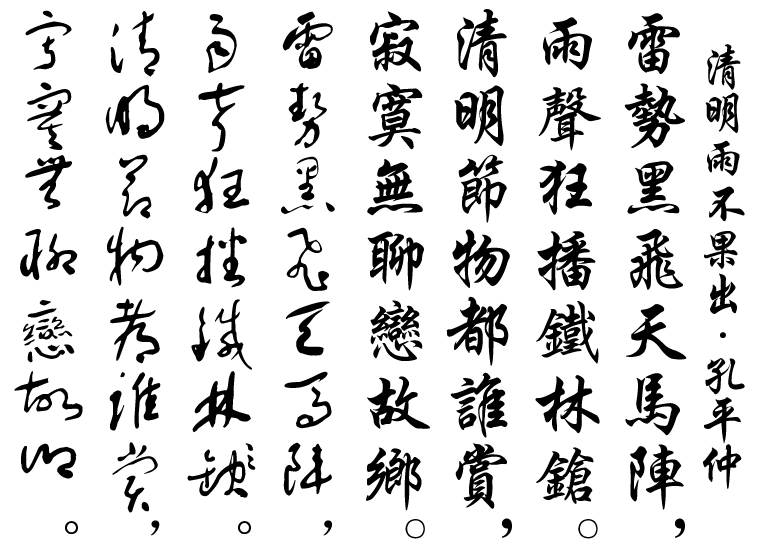 清明雨不果出·孔平仲
雷勢黑飛天馬陣，
雨聲狂播鐵林鎗。
清明節物都誰賞，
寂寞無聊戀故鄉。
雷勢黑飛天馬陣，
雨聲狂播鐵林鎗。
清明節物都誰賞，
寂寞無聊戀故鄉。